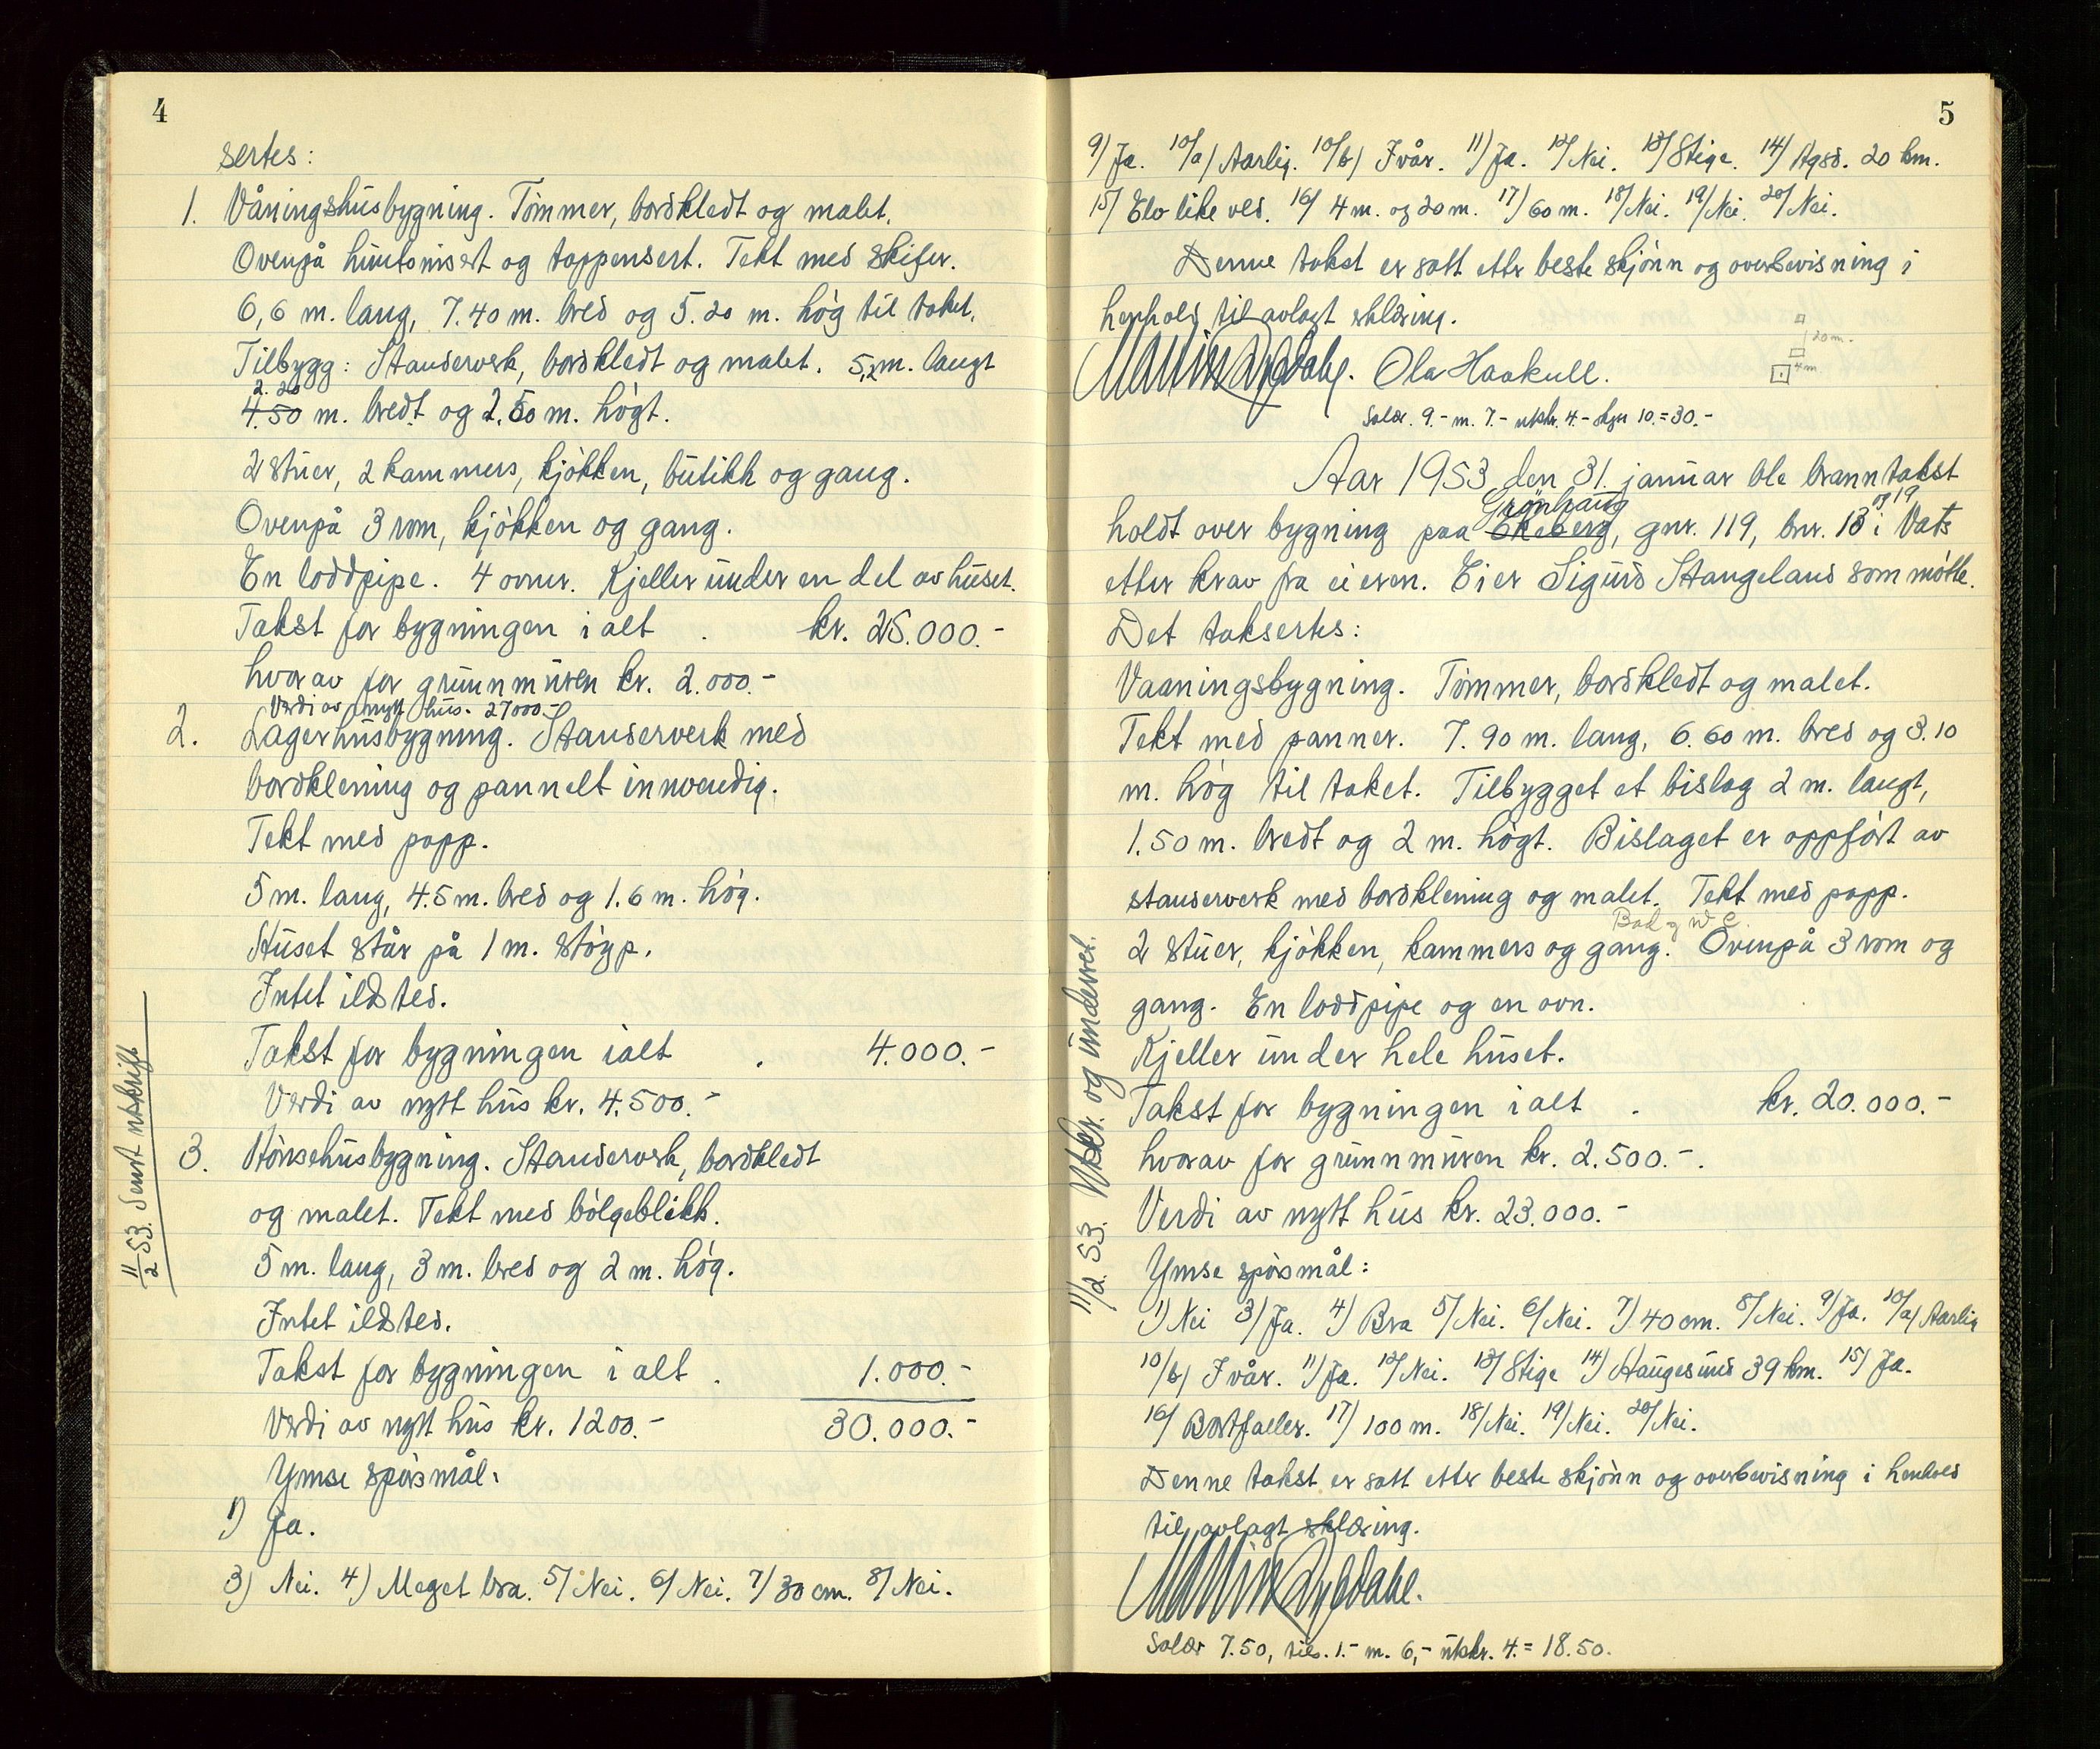 4
sertes:
1. Våningshusbygning. Tømmer, bordkledt og malet.
Ovenpå huntonisert og tappensert. Tekt med skifer.
6,6 m. lang, 7.40 m. bred og 5.20 m. høg til taket.
Tilbygg: Standerverk, bordkledt og malet. 5,2 m. langt
2.20
4.50 m. bredt og 2.50 m. høgt.
2 stuer, 2 kammers, kjøkken, butikk og gang.
Ovenpå 3 rom, kjøkken og gang.
En loddpipe. 4 ovner. Kjeller under en del av huset.
Takst for bygningen ialt . kr. 25.000.-
hvorav for grunnmuren kr. 2.000.-
Verdi av nytt hus. 27000.-
2. Lagerhusbygning. Standerverk med
bordkledning og pannelt innvendig.
Tekt med papp.
5 m. lang, 4.5 m. bred og 1.6 m. høg.
Huset står på 1 m. støyp.
Intet ildsted.
Takst for bygningen ialt . 4.000.-
Verdi av nytt hus kr. 4.500.-
3. Hønsehusbygning. Standerverk, bordkledt
og malet. Tekt med bølgeblikk.
5 m. lang, 3 m. bred og 2 m. høg.
Intet ildsted.
Takst for bygningen i alt . 1.000.-
Verdi av nytt hus kr. 1200.- 30.000.-
Ymse spørsmål:
1) Ja.
3) Nei. 4) Meget bra. 5/ Nei. 6/ Nei. 7/ 30 cm. 8/ Nei.
11/2 53. Sendt utskrift
5
9/ Ja. 10/a/ Aarlig. 10/b/ I vår. 11/ Ja. 12/ Nei. 13/ Stige. 14/ Aqsd. 20 km.
15/ Elv like ved. 16/ 4 m. og 20 m. 17/ 60 m. 18/ Nei. 19/ Nei. 20/ Nei.
Denne takst er satt etter beste skjønn og overbevisning i
henhold til avlagt erklæring.
20 m.
4 m
Ola Haakull.
Salær. 9.- m. 7.- utskr. 4.- 10.=30.-
Aar 1953 den 31. januar ble branntakst
Grønhaug og 19
holdt over bygning paa Ekeberg, gnr. 119, bnr. 13 i Vats
etter krav fra eieren. Eier Sigurd Stangeland som møtte.
Det taksertes:
Vaaningsbygning. Tømmer, bordkledt og malet.
Tekt med panner. 7.90 m. lang, 6.60 m. bred og 3.10
m. høg til taket. Tilbygget et bislag 2 m. langt,
1.50 m. bredt og 2 m. høgt. Bislaget er oppført av
standerverk med bordkledning og malet. Tekt med papp.
Bad og WC
2 stuer, kjøkken, kammers og gang. Ovenpå 3 rom og
gang. En loddpipe og en ovn.
Kjeller under hele huset.
Takst for bygningen ialt . kr. 20.000.-
hvorav for grunnmuren kr. 2.500.-.
Verdi av nytt hus kr. 23.000.-
Ymse spørsmål:
1) Nei 3) Ja. 4) Bra 5/ Nei. 6/ Nei. 7) 40 cm. 8/ Nei. 9/ Ja. 10/a/ Aarlig
10/b/ I vår. 11/ Ja. 12/ Nei. 13/ Stige 14) Haugesund 39 km. 15/ Ja.
16/ Bortfaller. 17) 100 m. 18/ Nei. 19/ Nei. 20/ Nei.
Denne takst er satt etter beste skjønn og overbevisning i henhold
til avlagt erklæring.
Salær 7.50, tils. 1.- m. 6,- utskr. 4.= 18.50.
11/2 53. Utskr. og underret.